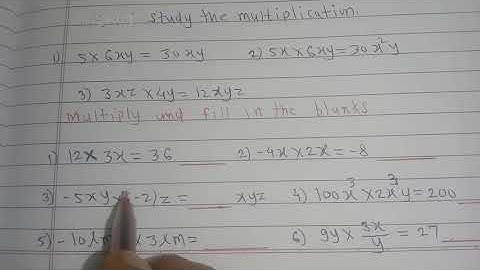 study the multiplication.
1) 5 x 6xy = 30xy 2) 5x x 6xy = 30x²y
3) 3xz x 4y = 12xyz
Multiply and fill in the blanks
1) 12 x 3x = 36 ____ 2) -4x x 2x = -8 ____
3) -5xy -2)z = ____ xyz 4) 100x³ x 2x³y = 200 ____
5) -10lm x 3lm = ____ 6) 9y x 3x/y = 27 ____